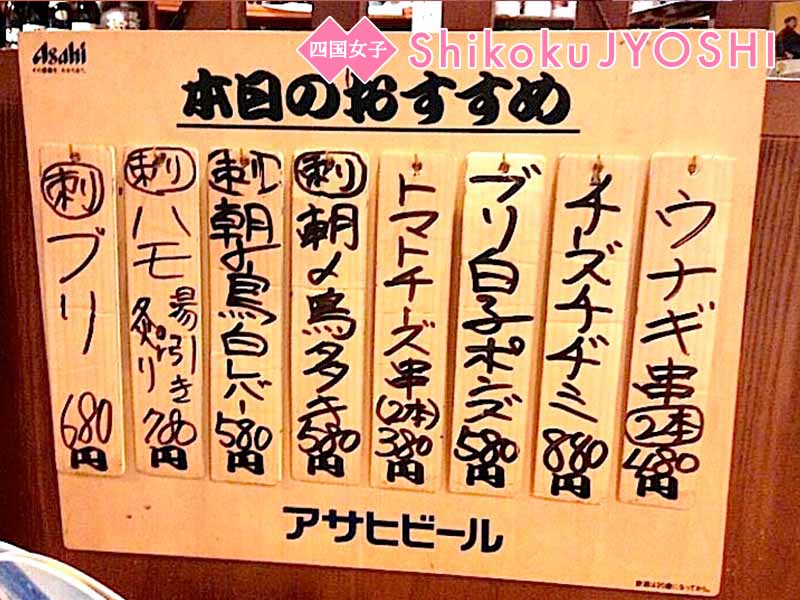 四国女子 Shikoku JYOSHI
Asahi
本日のおすすめ
ウナギ串
2本
480円
チーズチヂミ
880円
ブリ白子ポンズ
580円
トマトチーズ串
(2本)
380円
刺
朝〆鳥タタキ
580円
刺
朝〆鳥白レバー
580円
刺
ハモ
湯引き
炙り
780円
刺
ブリ
680円
アサヒビール
飲酒は20歳になってから。